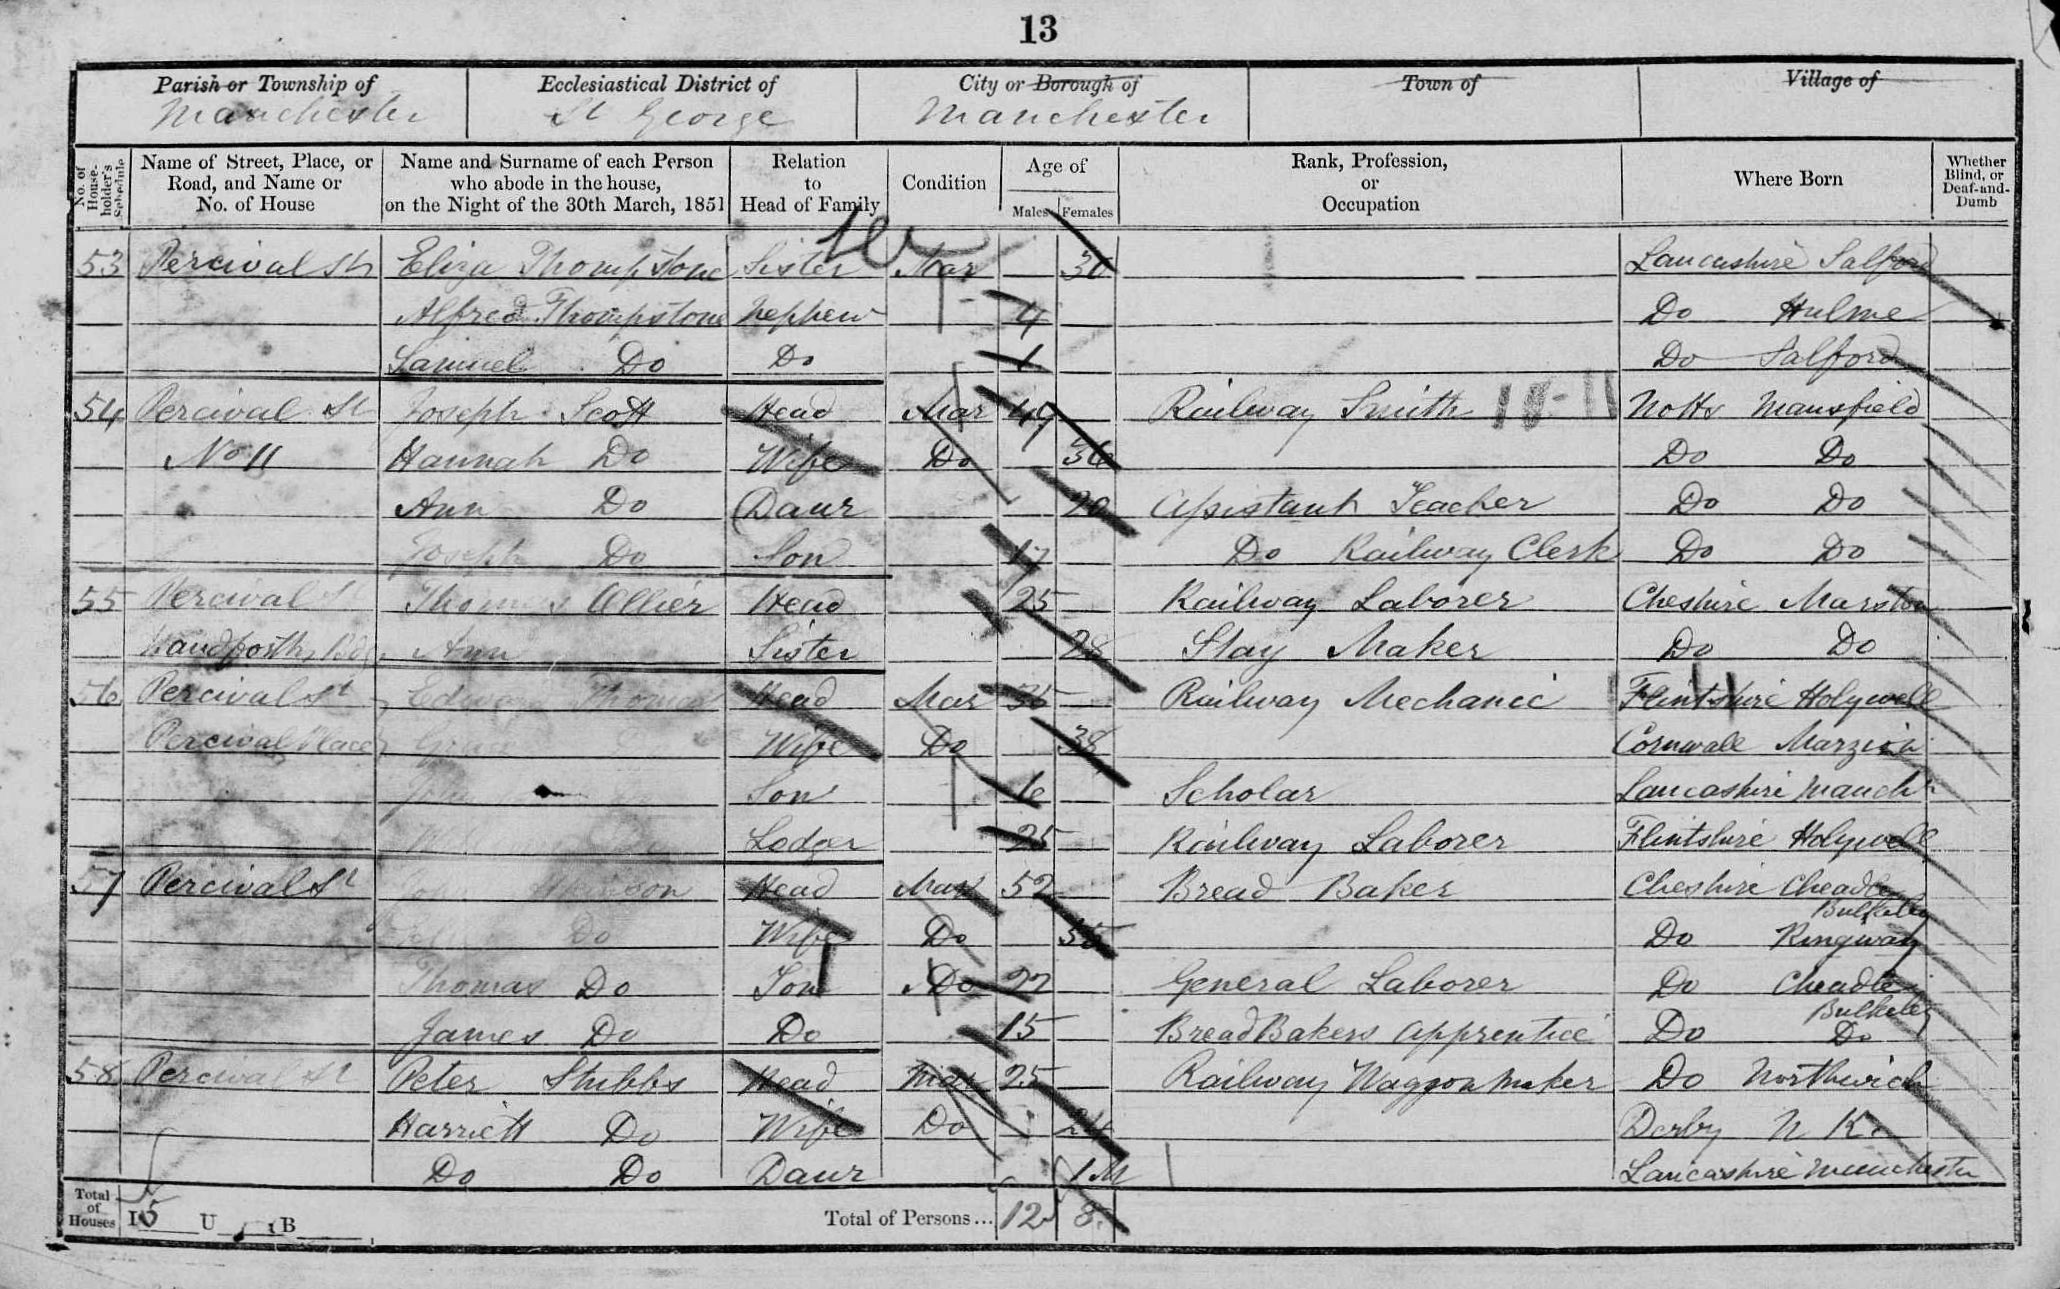 13
Parish or Township of Ecclesiastical District of City or Borough of Town of Village of
Manchester St George Manchester
No. of House-holder's Schedule
Name of Street, Place, or Road, and Name or No. of House
Name and Surname of each Person who abode in the house, on the Night of the 30th March, 1851
Relation to Head of Family
Condition
Age of
Males Females
Rank, Profession, or Occupation
Where Born
Whether Blind, or Deaf-and-Dumb
53 Percival St Eliza Thompstone Sister Mar 30 Lancashire Salford
Alfred Thompstone Nephew 4 Do Hulme
Samuel Do Do 1 Do Salford
54 Percival St Joseph Scott Head Mar 49 Railway Smith Notts Mansfield
No 11 Hannah Do Wife Do 36 Do Do
Ann Do Daur 20 Assistant Teacher Do Do
Joseph Do Son 17 Do Railway Clerk Do Do
55 Percival St Thomas Ollier Head 25 Railway Laborer Cheshire Marston
Ann Sister 28 Stay Maker Do Do
56 Percival St Thomas Head Mar 35 Railway Mechanic Flintshire Holywell
Percival Place Grace Wife Do 38 Cornwall Marzion
John Son 6 Scholar Lancashire Manch
Lodger 25 Railway Laborer Flintshire Holywell
57 Percival St John Head Mar 52 Bread Baker Cheshire Cheadle Bulkeley
Do Wife Do 55 Do Ringway
Thomas Do Son Do 22 General Laborer Do Cheadle Bulkeley
James Do Do 15 Bread Bakers Apprentice Do Do
58 Percival St Peter Stubbs Head Mar 25 Railway Waggon Maker Do Northwich
Harriett Do Wife Do 24 Derby N K
Do Do Daur 1 M Lancarshire Manchester
Total of Houses I 5 U B Total of Persons... 12 8